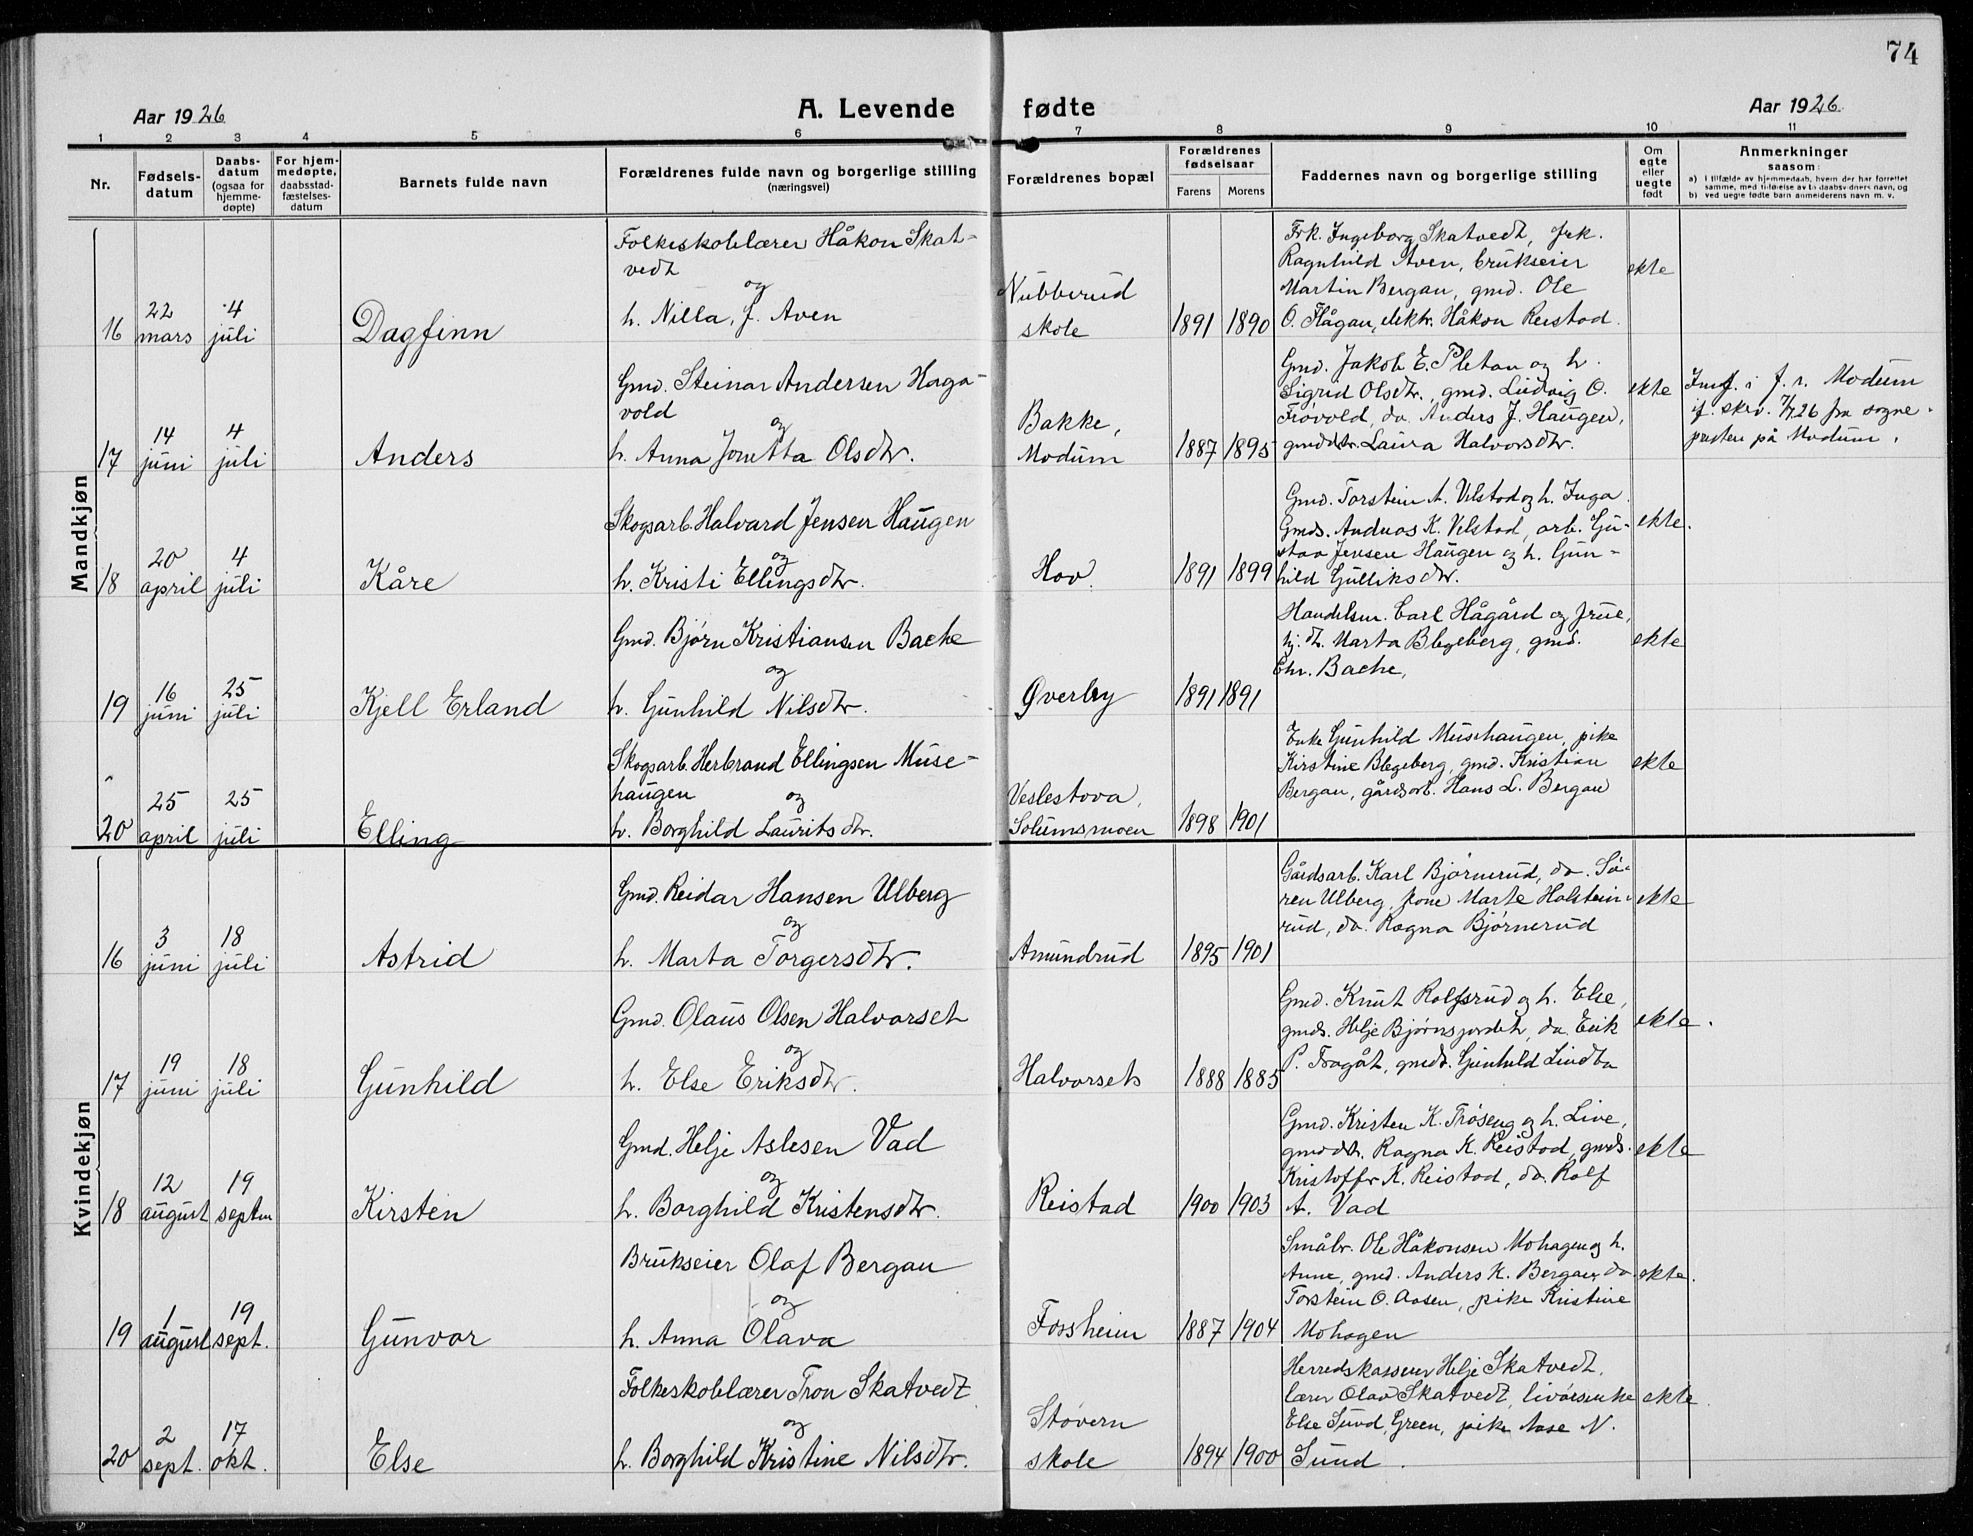 74
Aar 1926
A. Levende fødte
Aar 1926
1 2 3 4 5 6 7 8 9 10 11
Nr.
Fødsels-
datum
Daabs-
datum
(ogsaa for
hjemme-
døpte)
For hjem-
medøpte,
daabsstad-
fæstelses-
datum
Barnets fulde navn
Forældrenes fulde navn og borgerlige stilling
(næringsvei)
Forældrenes bopæl
Forældrenes
fødselsaar
Farens Morens
Faddernes navn og borgerlige stilling
Om
egte
eller
uegte
født
Anmerkninger
saasom:
a) I tilfælde av hjemmedaab, hvem der har forrettet
samme, med tilføielse av to daabsvidners navn, og
b) ved uegte fødte barn anmelderens navn m. v.
Mandkjøn
16
22
mars
4
juli
Dagfinn
Folkeskolelærer Håkon Skat-
vedt
og
h. Nilla, f. Aven
Nubberud
skole
1891 1890
Frk. Ingeborg Skatvedt, frk.
Ragnhild Aven, brukseier
Martin Bergan, gmd. Ole
O. Flågan, elektr. Håkon Reistad.
ekte
17
14
juni
4
juli
Anders
Gmd. Steinar Andersen Haga-
vold
og
h. Anna Jonetta Olsdtr.
Bakke,
Modum
1887 1895
Gmd. Jakob E. Pletan og h.
Sigrid Olsdtr., gmd. Ludvig O.
Frøvold, do. Anders J. Haugen,
gmddtr. Laura Halvorsdtr.
ekte
Innf. i f. r. Modum
if. skrv. 7/7 26 fra sogne-
presten på Modum.
18
20
april
4
juli
Kåre
Skogsarb. Halvard Jensen Haugen
og
h. Kristi Ellingsdtr.
Hov
1891 1899
Gmd. Torstein A. Velstad og h. Inga
Gmds. Andreas K. Velstad, arb. Gu-
stav Jensen Haugen og h. Gun-
hild Gulliksdtr.
ekte.
19
16
juni
25
juli
Kjell Erland
Gmd. Bjørn Kristiansen Bache
og
h. Gunhild Nilsdtr.
Øverby
1891 1891
Handelsm. Carl Hågård og frue,
hj. dtr. Marta Blegeberg, gmd.
Chr. Bache,
ekte
20
25
april
25
juli
Elling
Skogsarb. Herbrand Ellingsen Muse-
haugen og
h. Borghild Lauritsdtr.
Veslestova,
Solumsmoen
1898 1901
Enke Gunhild Musehaugen, pike
Kirstine Blegeberg, gmd. Kristian
Bergan, gårdsarb. Hans L. Bergan
ekte
Kvindekjøn
16
3
juni
18
juli
Astrid
Gmd. Reidar Hansen Ulberg
og
h. Marta Torgersdtr.
Amundrud
1895 1901
Gårdsarb. Karl Bjørnerud, do. Sø-
ren Ulberg, kone Marte Holstein-
rud, do. Ragna Bjørnerud
ekte
17
19
juni
18
juli
Gunhild
Gmd. Olaus Olsen Halvorset
og
h. Else Eriksdtr.
Halvorsets
1888 1885
Gmd. Knut Rolfsrud og h. Else,
gmds. Helje Bjørnsjordet, do. Erik
P. Tragåt, gmds. Gunhild Lindbo
ekte.
18
12
august
19
septm
Kirsten
Gmd. Helje Aslesen Vad
og
h. Borghild Kristensdtr.
Reistad
1900 1903
Gmd. Kristen K. Trøseng og h. Live,
gmddtr. Ragna K. Reistad, gmds.
Kristoffer K. Reistad, do. Rolf
A. Vad
ekte
19
1
august
19
sept.
Gunvor
Brukseier Olaf Bergan
og
h. Anna Olava
Forsheim
1887 1904
Småbr. Ole Håkonsen Mohagen og h.
Anne, gmd. Anders K. Bergan, do.
Torstein O. Aasen, pike Kristine
Mohagen
ekte.
20
2
sept.
17
okt.
Else
Folkeskolelærer Tron Skatvedt
og
h. Borghild Kristine Nilsdtr.
Støvern
skole
1894 1900
Herredskasserer Helje Skatvedt,
lærer Olav Skatvedt,
Else Sund Green, pike Aase N.
Sund.
ekte.